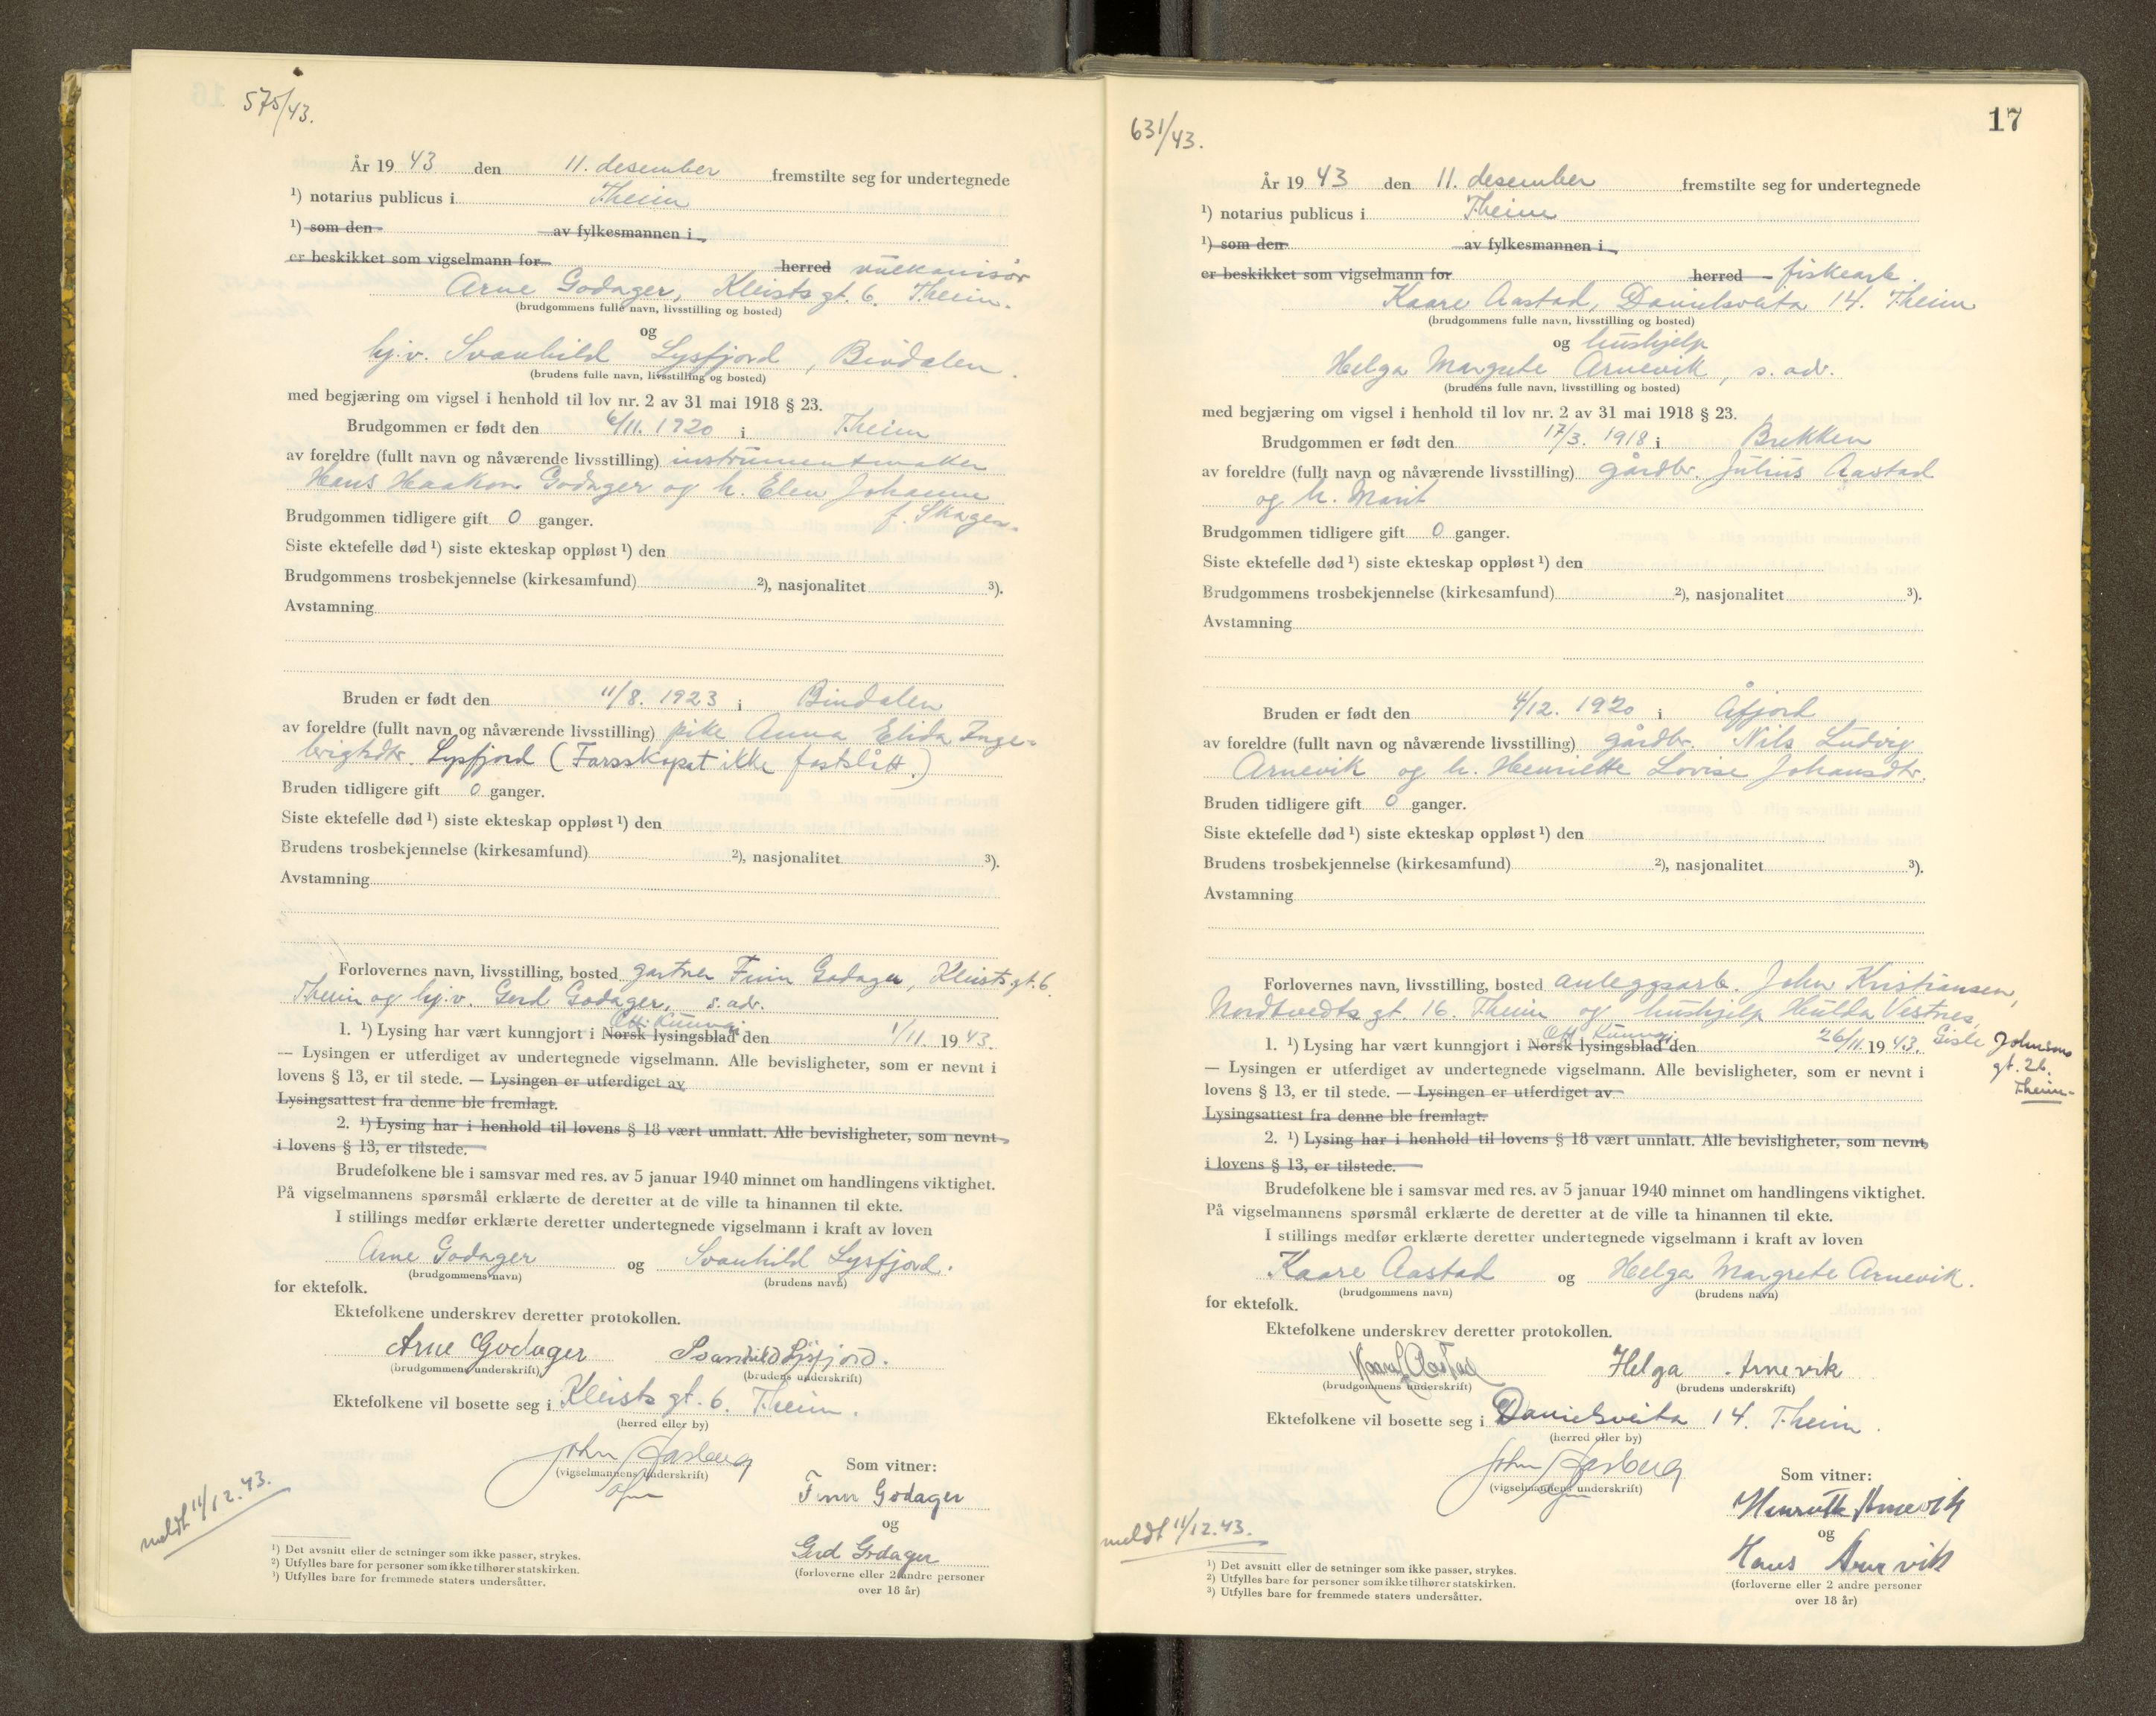 575/43.
År 19 43 den 11. desember fremstilte seg for undertegnede
¹) notarius publicus i Theim
¹) som den av fylkesmannen i
er beskikket som vigselmann for herred vulkanisør
Arne Godager, Kleists gt. 6. Theim.
(brudgommens fulle navn, livsstilling og bosted)
og
hj.v. Svanhild Lysfjord, Bindalen.
(brudens fulle navn, livsstilling og bosted)
med begjæring om vigsel i henhold til lov nr. 2 av 31 mai 1918 § 23.
Brudgommen er født den 6/11. 1920 i Theim
av foreldre (fullt navn og nåværende livsstilling) instrumentmaker
Hans Haakon Godager og h. Elen Johanne
f. Skagen.
Brudgommen tidligere gift 0 ganger.
Siste ektefelle død ¹) siste ekteskap oppløst ¹) den
Brudgommens trosbekjennelse (kirkesamfund) ²), nasjonalitet ³).
Avstamning
Bruden er født den 11/8. 1923 i Bindalen
av foreldre (fullt navn og nåværende livsstilling) pike Anna Elida Inge-
brigtsdtr. Lysfjord (Farsskapet ikke fastslått.)
Bruden tidligere gift 0 ganger.
Siste ektefelle død ¹) siste ekteskap oppløst ¹) den
Brudens trosbekjennelse (kirkesamfund) ²), nasjonalitet ³).
Avstamning
Forlovernes navn, livsstilling, bosted gartner Finn Godager, Kleists gt. 6.
Theim og hj.v. Gerd Godager, s. adr.
Off. Kunngj.
1. ¹) Lysing har vært kunngjort i Norsk lysingsblad den 1/11. 19 43.
— Lysingen er utferdiget av undertegnede vigselmann. Alle bevisligheter, som er nevnt i
lovens § 13, er til stede. — Lysingen er utferdiget av
Lysingsattest fra denne ble fremlagt.
2. ¹) Lysing har i henhold til lovens § 18 vært unnlatt. Alle bevisligheter, som nevnt
i lovens § 13, er tilstede.
Brudefolkene ble i samsvar med res. av 5 januar 1940 minnet om handlingens viktighet.
På vigselmannens spørsmål erklærte de deretter at de ville ta hinannen til ekte.
I stillings medfør erklærte deretter undertegnede vigselmann i kraft av loven
Arne Godager og Svanhild Lysfjord.
(brudgommens navn) (brudens navn)
for ektefolk.
Ektefolkene underskrev deretter protokollen.
Arne Godager Svanhild Lysfjord.
(brudgommens underskrift) (brudens underskrift)
Ektefolkene vil bosette seg i Kleists gt. 6. Theim.
(herred eller by)
John Aasberg
(vigselmannens underskrift)
Som vitner:
Finn Godager
og
Gerd Godager
(forloverne eller 2 andre personer
over 18 år)
meldt 11/12.43.
¹) Det avsnitt eller de setninger som ikke passer, strykes.
²) Utfylles bare for personer som ikke tilhører statskirken.
³) Utfylles bare for fremmede staters undersåtter.
17
631/43.
År 19 43 den 11. desember fremstilte seg for undertegnede
¹) notarius publicus i Theim
¹) som den av fylkesmannen i
er beskikket som vigselmann for herred fiskearb.
Kaare Aastad, Danielsveita 14. Theim
(brudgommens fulle navn, livsstilling og bosted)
og hushjelp
Helga Margrete Arnevik, s. adr.
(brudens fulle navn, livsstilling og bosted)
med begjæring om vigsel i henhold til lov nr. 2 av 31 mai 1918 § 23.
Brudgommen er født den 17/3. 1918 i Brekken
av foreldre (fullt navn og nåværende livsstilling) gårdbr. Julius Aastad
og h. Marit
Brudgommen tidligere gift 0 ganger.
Siste ektefelle død ¹) siste ekteskap oppløst ¹) den
Brudgommens trosbekjennelse (kirkesamfund) ²), nasjonalitet ³).
Avstamning
Bruden er født den 4/12. 1920 i Åfjord
av foreldre (fullt navn og nåværende livsstilling) gårdbr. Nils Ludvig
Arnevik og h. Henriette Lovise Johansdtr.
Bruden tidligere gift 0 ganger.
Siste ektefelle død ¹) siste ekteskap oppløst ¹) den
Brudens trosbekjennelse (kirkesamfund) ²), nasjonalitet ³).
Avstamning
Forlovernes navn, livsstilling, bosted anleggsarb. John Kristiansen,
Nordtvedts gt. 16. Theim og hushjelp Hulda Vestnes,
Gisle Johnsons
gt. 26.
Theim.
Off. Kunngj.
1. ¹) Lysing har vært kunngjort i Norsk lysingsblad den 26/11 19 43.
— Lysingen er utferdiget av undertegnede vigselmann. Alle bevisligheter, som er nevnt i
lovens § 13, er til stede. — Lysingen er utferdiget av
Lysingsattest fra denne ble fremlagt.
2. ¹) Lysing har i henhold til lovens § 18 vært unnlatt. Alle bevisligheter, som nevnt
i lovens § 13, er tilstede.
Brudefolkene ble i samsvar med res. av 5 januar 1940 minnet om handlingens viktighet.
På vigselmannens spørsmål erklærte de deretter at de ville ta hinannen til ekte.
I stillings medfør erklærte deretter undertegnede vigselmann i kraft av loven
Kaare Aastad og Helga Margrete Arnevik.
(brudgommens navn) (brudens navn)
for ektefolk.
Ektefolkene underskrev deretter protokollen.
Kaare Aastad Helga Arnevik
(brudgommens underskrift) (brudens underskrift)
Ektefolkene vil bosette seg i Danielsveita 14. Theim.
(herred eller by)
John Aasberg
(vigselmannens underskrift)
Som vitner:
Henriette Arnevik
og
Hans Arnevik
(forloverne eller 2 andre personer
over 18 år)
meldt 11/12.43.
¹) Det avsnitt eller de setninger som ikke passer, strykes.
²) Utfylles bare for personer som ikke tilhører statskirken.
³) Utfylles bare for fremmede staters undersåtter.